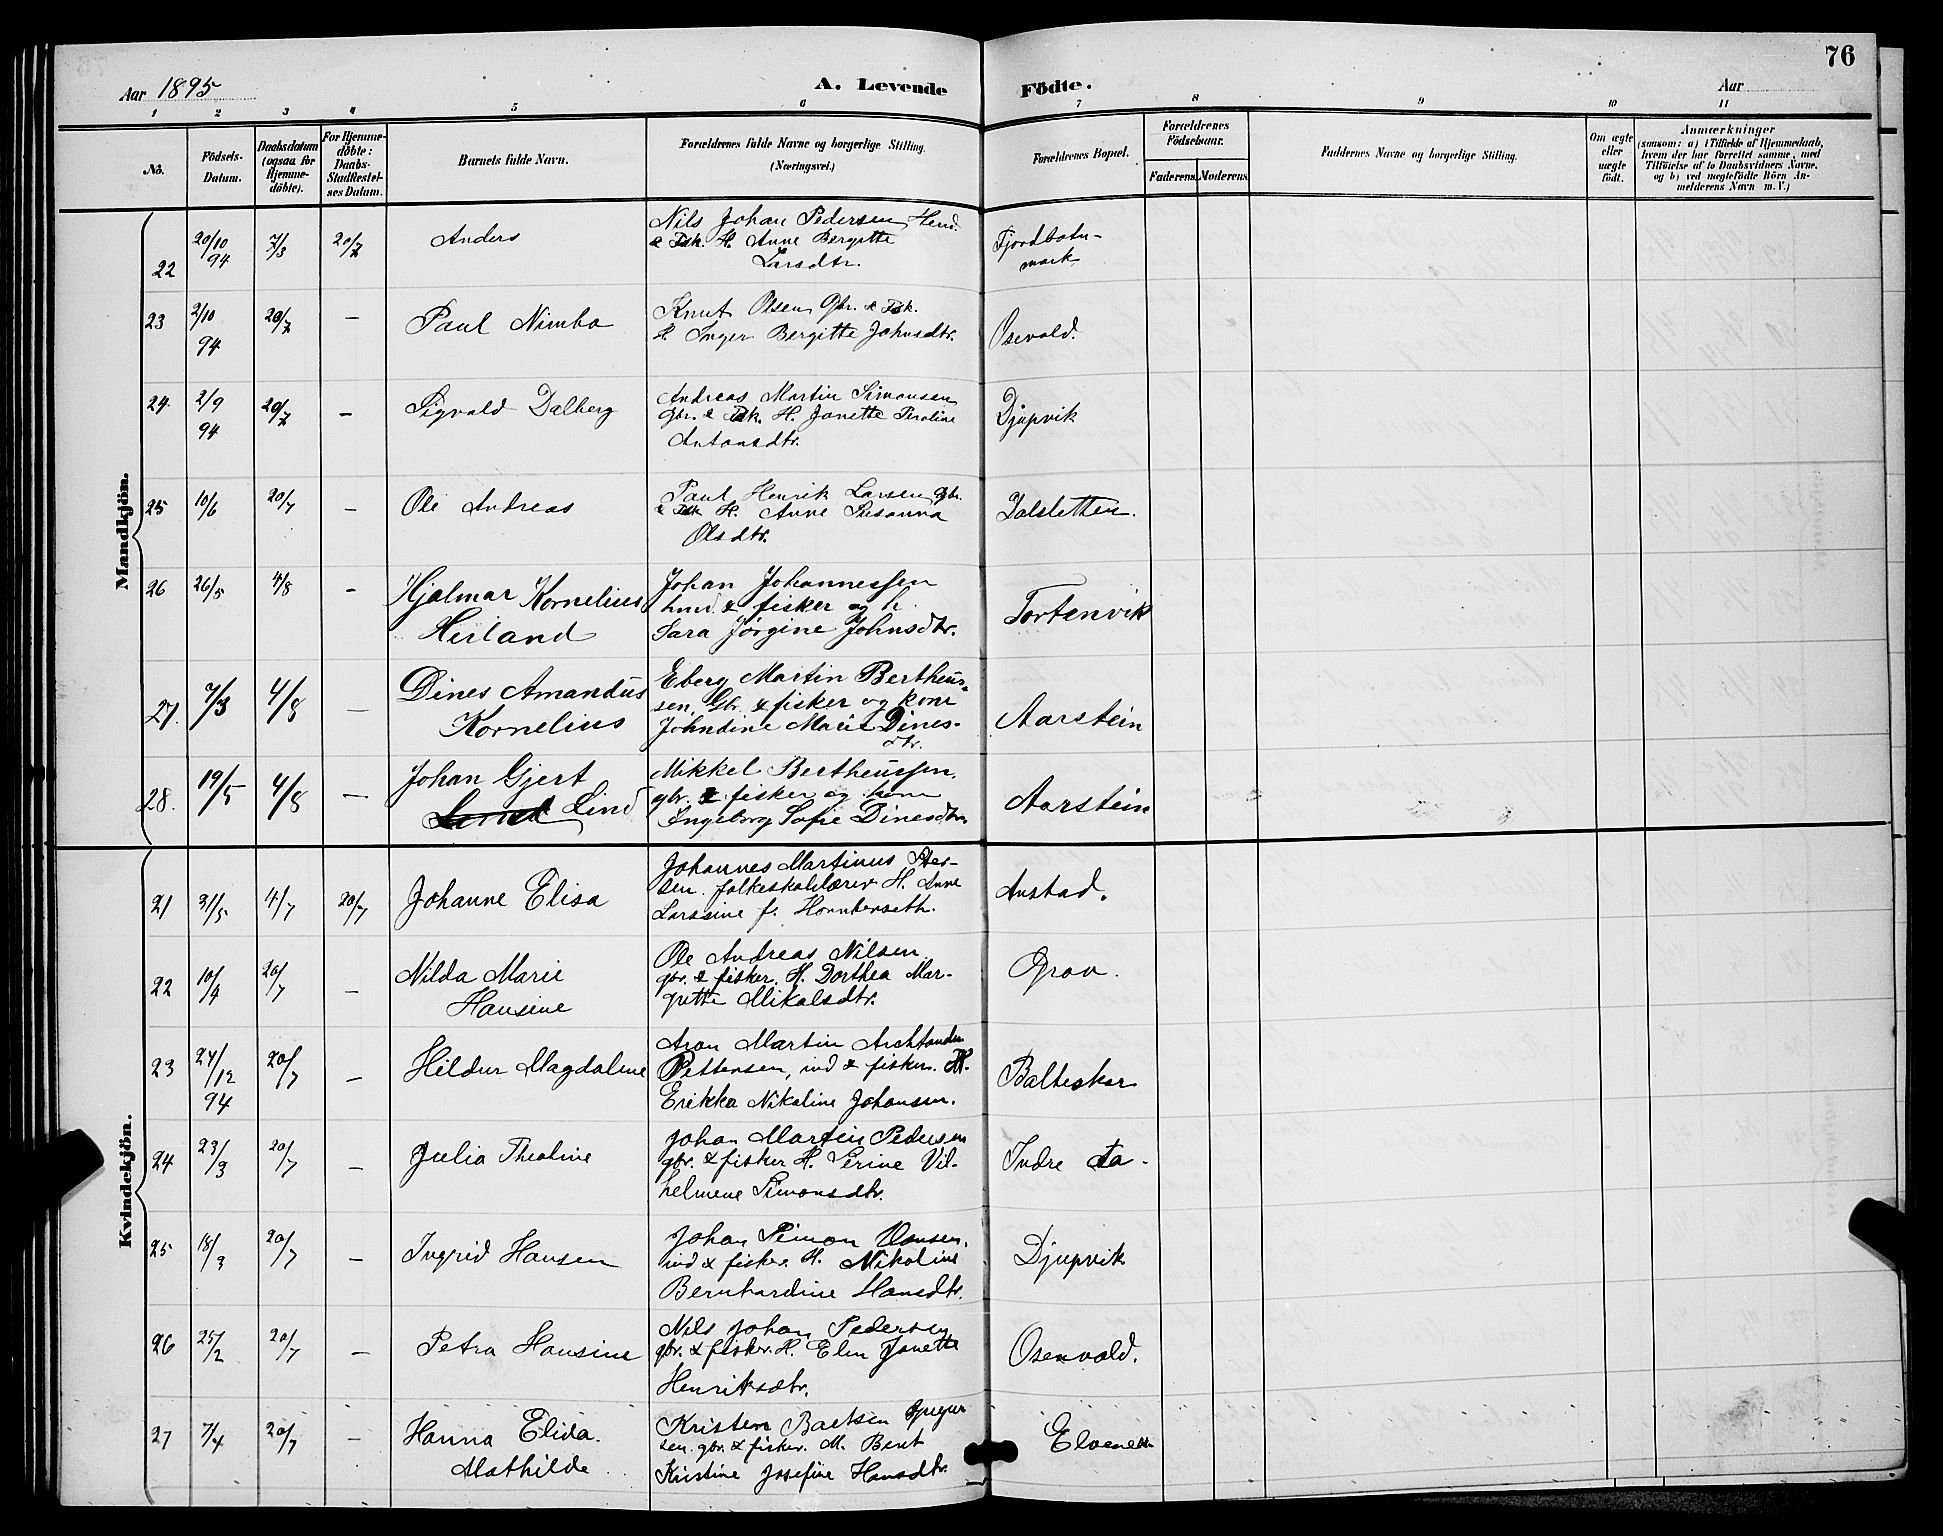 76
Aar 1895
A. Levende Födte.
Aar
1 2 3 4 5 6 7 8 9 10 11
No.
Födsels-Datum.
Daabsdatum (ogsaa for Hjemme-döbte).
For Hjemme-döbte: Daabs-Stadfæstel-ses Datum.
Barnets fulde Navn.
Forældrenes fulde Navne og borgerlige Stilling.
(Næringsvei.)
Forældrenes Bopæl.
Forældrenes Födselsaar.
Faderens. Moderens.
Faddernes Navne og borgerlige Stilling.
Om ægte eller uægte födt.
Anmærkninger
(saasom: a) i Tilfælde af Hjemmedaab,
hvem der har forrettet samme, med
Tilföielse af to Daabsvidners Navne,
og b) ved uægtefödte Börn An-
melderens Navn m. V.)
Mandkjön.
22 20/10 94 7/3 20/7 Anders
Nils Johan Pedersen
& Fsk. H. Anne Bergitte
Larsdtr.
Fjordbotn-
mark
23 2/10 94 20/7 — Paul Nimbo
Knut Olsen Gbr. & Fsk.
H. Inger Bergitte Johnsdtr.
Osevold.
24 2/9 94 20/7 — Sigvald Dalberg
Andreas Martin Simonsen
Gbr. & Fsk. H. Janette Peroline
Antonsdtr.
Djupvik
25 10/6 20/7 — Ole Andreas
Paul Henrik Larsen Gbr.
& Fsk H. Anne Susanna
Olsdtr.
26 26/5 4/8 — Hjalmar Kornelius
Heiland
Johan Johannessen
& fisker og h.
Sara Jørgine Johnsdtr.
Tortenvik
27. 7/3 4/8 — Dines Amandus
Kornelius
Eberg Martin Bertheus-
sen, Gbr. & fisker og kone
Johndine Marie Dines-
dtr.
Aarstein
28. 19/5 4/8 — Johan Gjert
Lind
Mikkel Bertheussen,
gbr. & fisker og kone
Ingeborg Sofie Dinesdtr
Aarstein
Kvindekjön.
21 31/5 4/7 20/7 Johanne Elisa
Johannes Martinus Peter-
sen. folkeskolelærer H. Anne
Larssine f.
Anstad.
22 10/4 20/7 — Nilda Marie
Hansine
Ole Andreas Nilsen
gbr. & fisker. H. Dorthea Mar-
grette Mikalsdtr.
Grov.
23 27/12 94 20/7 — Hildur Magdaline
Aron Martin
Pettersen, ind & fisker. H.
Erikka Nikoline Johansen.
Balteskar
24 23/3 20/7 — Julia Thealine
Johan Martin Pedersen
gbr. & fisker H. Serine Vil-
helmene Simonsdtr.
Indre
25 18/3 20/7 — Ingrid Hansen
Johan Simon Hansen,
ind & fisker. H. Nikoline
Bernhardine Hansdtr.
Djupvik
26 25/2 20/7 — Petra Hansine
Nils Johan Pedersen
gbr. & fisker. H. Elen Janette
Henriksdtr.
Osenvold.
27 7/4 20/7 — Hanna Elida.
Mathilde
Kristen
sen. gbr. & fisker. H. Berit
Kristine Josefine Hansdtr.